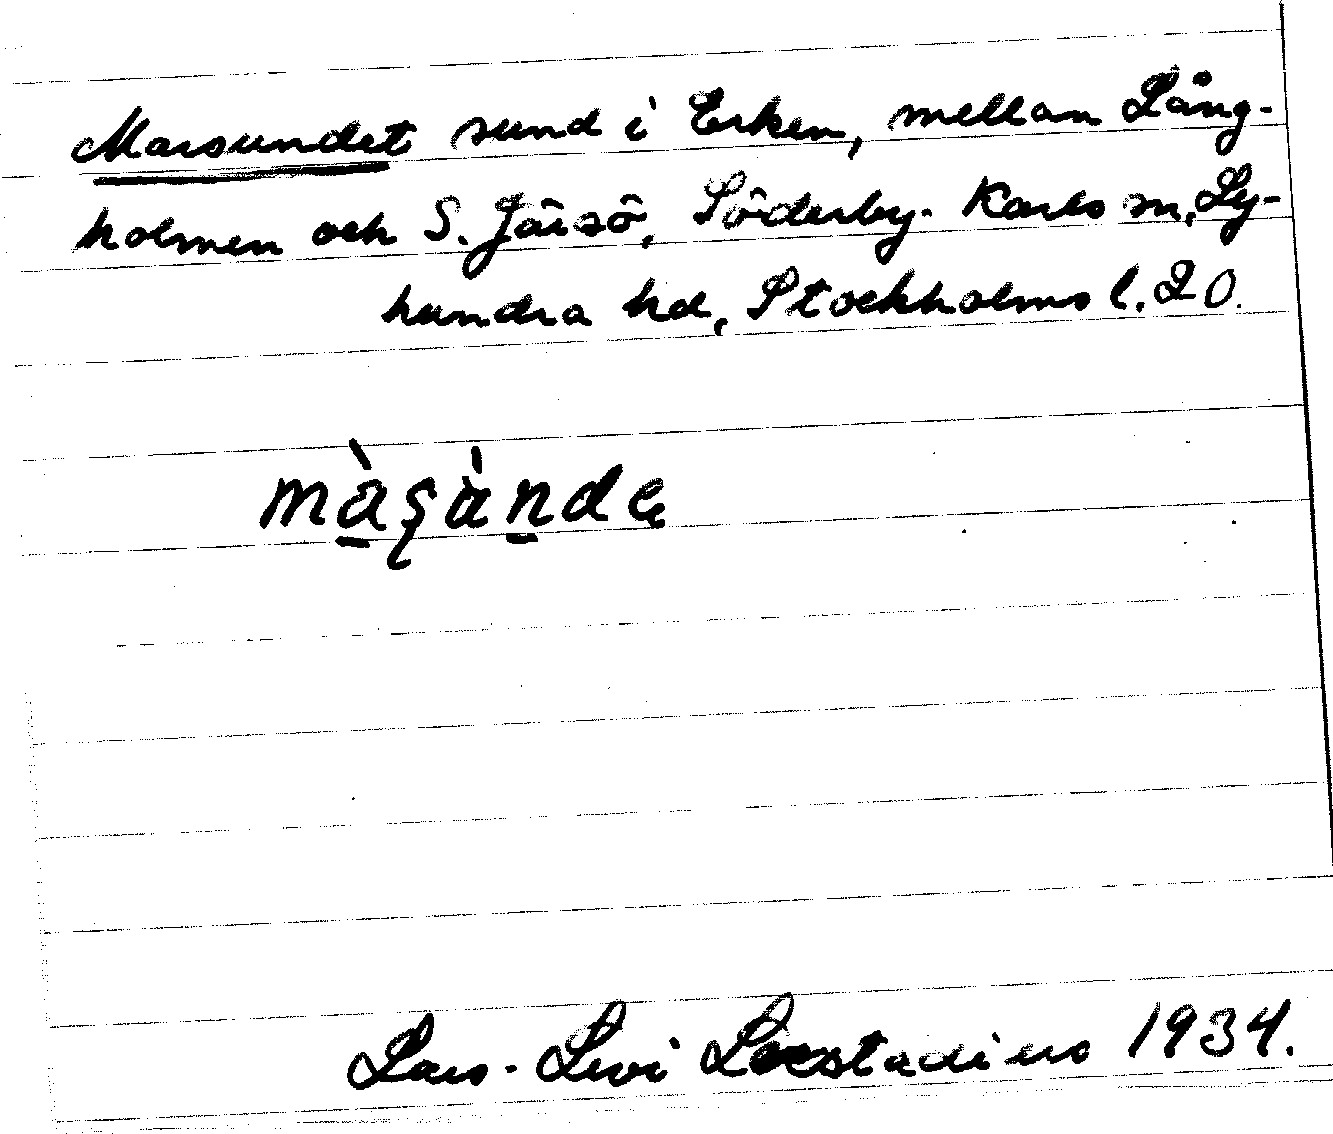 Marsundet sund i Erken, mellan Lång-
holmen och S. Järsö, Söderby-Karls sn, Ly-
hundra hd, Stockholms l. 20.
Lars-Levi Læstadius 1934.